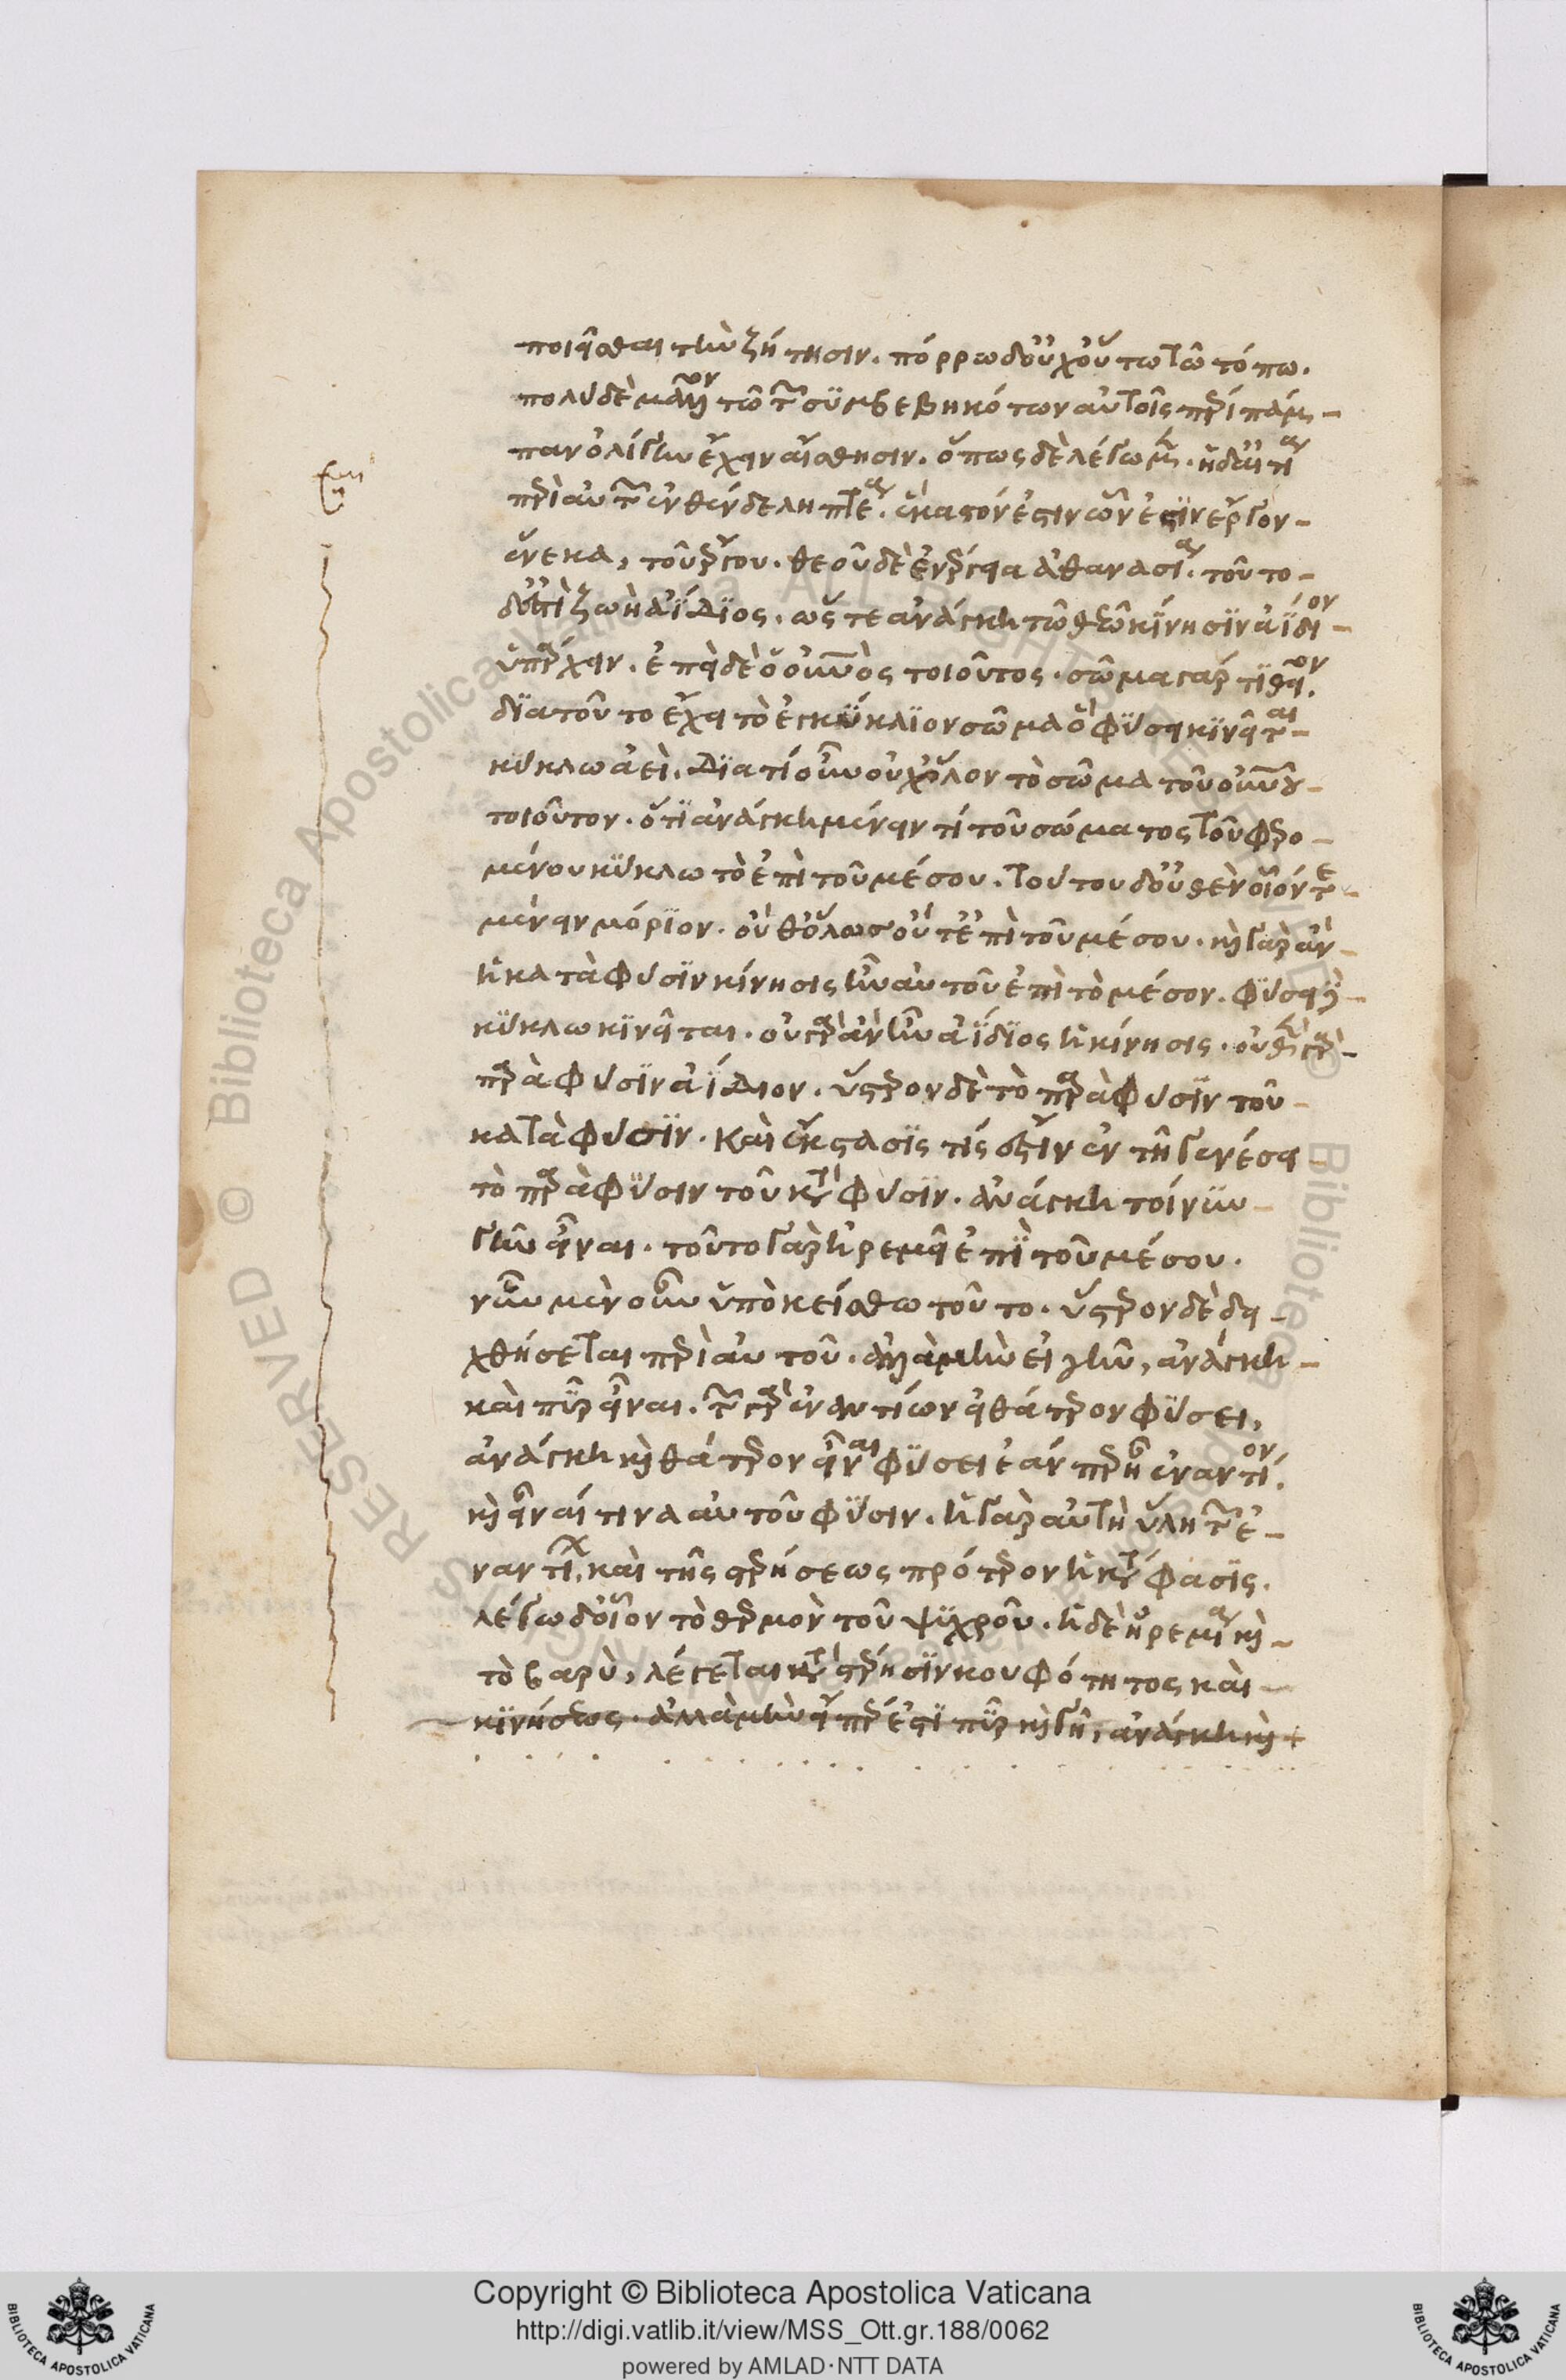 ποιεῖσθαι τὴν ζήτησιν. πόρρω δ' οὐχ οὕτω τῶ τόπω.
πολὺ δὲ μᾶλλον τῶ τῶν συμβεβηκότων αὐτοῖς περὶ πάμ-
παν ὀλίγων ἔχειν αἴσθησιν. ὅπως δὲ λέγωμεν. ἡ δ' αἰτία
περὶ αὐτῶν ἐνθένδε ληπτέα. ἕκαστόν ἐστιν ὧν ἐστὶν ἔργον-
ἕνεκα, τοῦ ἔργου. θεοῦ δὲ ἐνέργεια ἀθανασία. τοῦτο-
δ' ἐστὶ ζωὴ ἀΐδιος. ὥστε ἀνάγκη τῶ θείω κίνησιν ἀΐδιον-
ὑπάρχειν. ἐπεὶ δὲ ὁ οὐρανὸς τοιοῦτος. σῶμα γάρ τι θεῖον.
διὰ τοῦτο ἔχει τὸ ἐγκύκλιον σῶμα ὃ φύσει κινεῖται-
κύκλω ἀεὶ. Διατί οὖν οὐχ ὅλον τὸ σῶμα τοῦ οὐρανοῦ-
τοιοῦτον. ὅτι ἀνάγκη μένειν τί τοῦ σώματος τοῦ φερο-
μένου κύκλω τὸ ἐπὶ τοῦ μέσου. τούτου δ' οὐθὲν οἷόν τε-
μένειν μόριον. οὔθ' ὅλως οὔτ' ἐπὶ τοῦ μέσου. καὶ γὰρ ἂν-
ἡ κατὰ φύσιν κίνησις ἦν αὐτοῦ ἐπὶ τὸ μέσον. φύσει δὲ-
κύκλω κινεῖται. οὐ γὰρ ἂν ἦν ἀΐδιος ἡ κίνησις. οὐθὲν γὰρ-
παρὰ φύσιν ἀΐδιον. ὕστερον δὲ τὸ παρὰ φύσιν τοῦ-
κατὰ φύσιν. καὶ ἔκστασίς τίς ἐστιν ἐν τῆ γενέσει-
τὸ παρὰ φύσιν τοῦ κατὰ φύσιν. ἀνάγκη τοίνυν-
γῆν εἶναι. τοῦτο γὰρ ἠρεμεῖ ἐπὶ τοῦ μέσου.
νῦν μὲν οὖν ὑποκείσθω τοῦτο. ὕστερον δὲ δει-
χθήσεται περὶ αὐτοῦ. ἀλλὰ μὴν εἰ γῆν, ἀνάγκη-
καὶ πῦρ εἶναι. τῶν γὰρ ἐναντίων εἰ θάτερον φύσει,
ἀνάγκη καὶ θάτερον εἶναι φύσει ἐάν περ ἦ ἐναντίον.
καὶ εἶναί τινα αὐτοῦ φύσιν. ἡ γὰρ αὐτὴ ὕλη τῶν ἐ-
ναντίων. καὶ τῆς στερήσεως πρότερον ἡ κατάφασις.
λέγω δ' οἷον τὸ θερμὸν τοῦ ψυχροῦ. ἡ δὲ ἠρεμία καὶ-
τὸ βαρὺ, λέγεται κατὰ στέρησιν κουφότητος καὶ-
κινήσεως. ἀλλὰ μὴν εἴπερ ἐστὶ πῦρ καὶ γῆ, ἀνάγκη καὶ
Copyright © Biblioteca Apostolica Vaticana
http://digi.vatlib.it/view/MSS_Ott.gr.188/0062
powered by AMLAD·NTT DATA